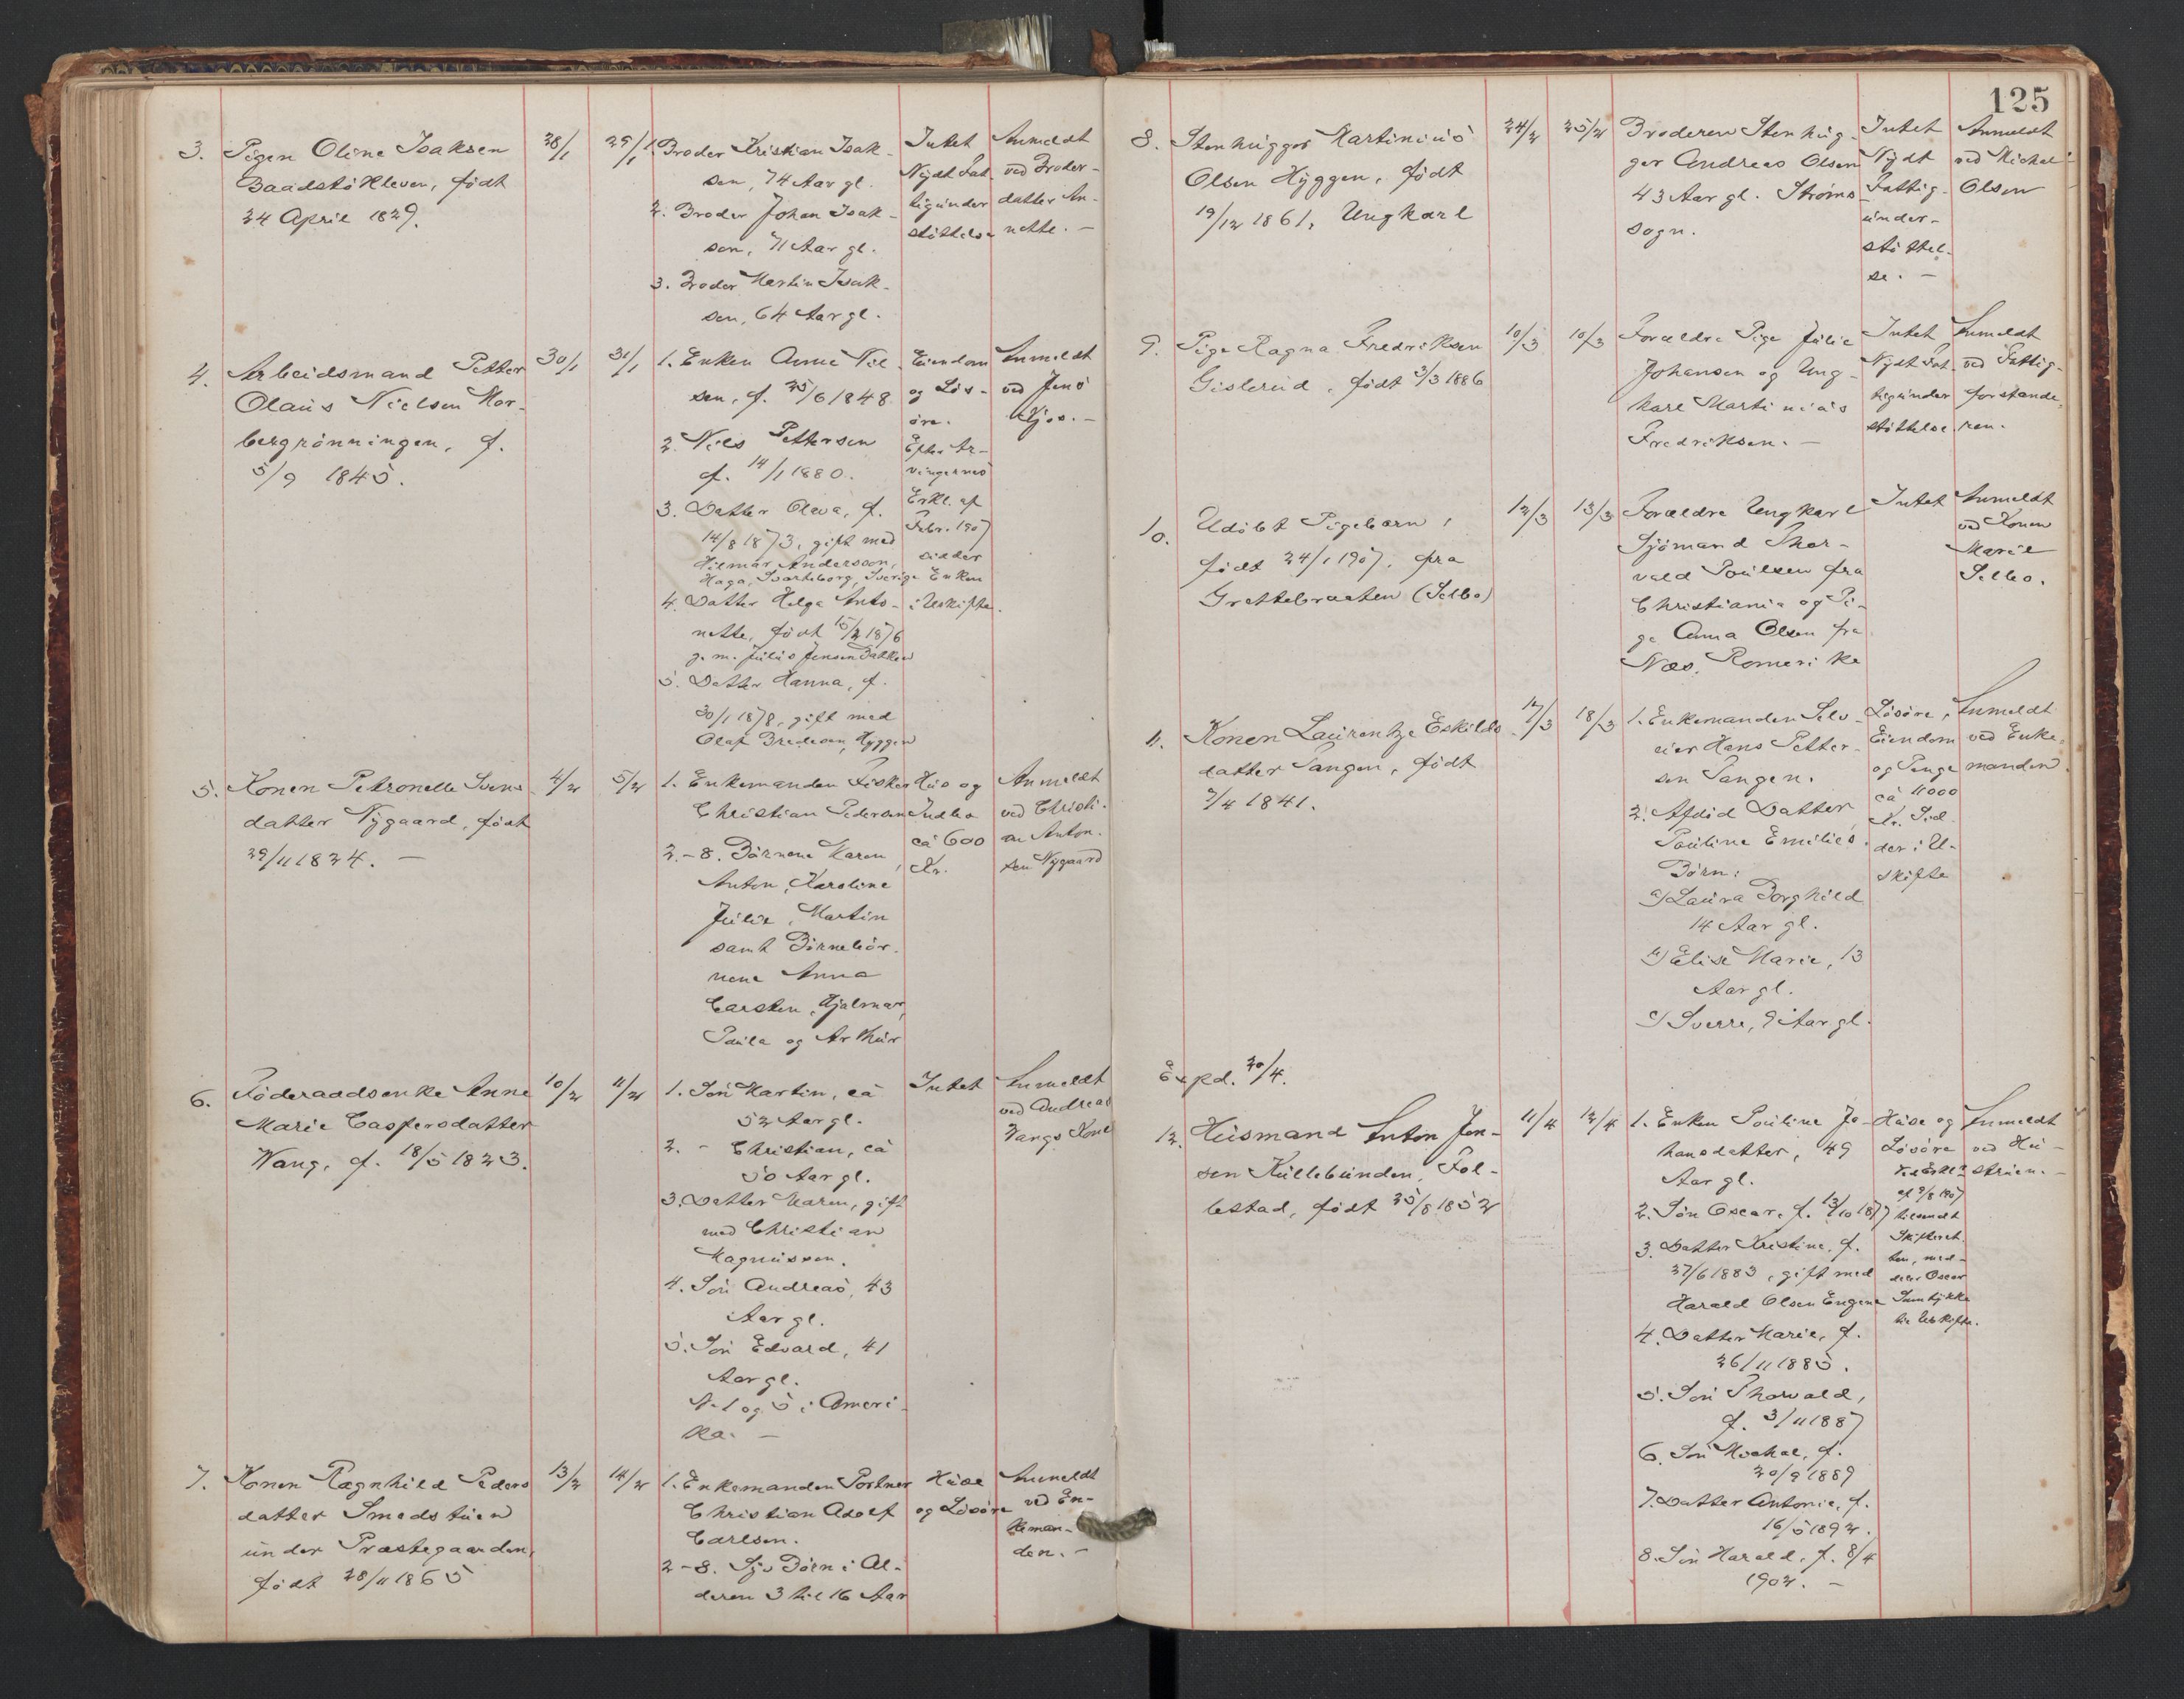 125
3.
Pigen Oline Isaksen
Baadstökleven, født
24 April 1829.
28/1
29/1
1. Broder Kristian Isak-
sen, 74 Aar gl.
2. Broder Johan Isak-
sen, 71 Aar gl.
3. Broder Martin Isak-
sen, 64 Aar gl.
Intet
Nydt Fat-
tigunder
støttelse
Anmeldt
ved Broder-
datter An-
nette. —
4.
Arbeidsmand Petter
Olaus Nielsen Mor-
bergrönningen, f.
5/9 1845.
30/1
31/1
1. Enken Anne Niel-
sen, f. 25/6 1848
2. Niels Pettersen
f. 14/1 1880.
3. Datter Olava, f.
14/8 1873, gift med
Hilmar Andersson,
Haga, Svarteborg, Sverige
4. Datter Helga Anto-
nette, født 15/2 1876
g. m. Julius Jensen Bakken
5. Datter Hanna, f.
30/1 1878, gift med
Olaf Bredesen, Hyggen
Eiendom
og Løs-
øre.
Efter Ar-
vingernes
Erkl. af
Febr. 1907
sidder
Enken
i Uskifte.
Anmeldt
ved Jens
Kjos. —
5.
Konen Petronelle Svens-
datter Nygaard, født
29/11 1834. —
4/2
5/2
1. Enkemanden Fisker
Christian Pedersen
2.-8. Börnene Karen,
Anton, Karoline
Julie, Martin
samt Börnebör-
nene Anna
Carsten, Hjalmar,
Paula og Arthur
Hus og
Indbo
ca 600
Kr.
Anmeldt
ved Christi-
an Anton-
sen Nygaard
6.
Föderaadsenke Anne
Marie Caspersdatter
Wang, f. 18/5 1823.
10/2
11/2
1. Sön Martin, ca
52 Aar gl.
2. - Christian, ca
50 Aar gl.
3. Datter Maren, gift
med Christian
Magnussen.
4. Sön Andreas, 43
Aar gl.
5. Sön Edvard, 41
Aar gl.
N. 1 og 5 i Ameri-
ka. —
Intet
Anmeldt
ved Andreas
Wangs Kone
7.
Konen Ragnhild Peders-
datter Smedstuen
under Præstegaarden,
født 28/11 1865
13/2
14/2
1. Enkemanden Portner
Christian Adolf
Carlsen.
2-8. Syv Börn i Al-
deren 3 til 16 Aar
Huse
og Lösöre
Anmeldt
ved En-
keman-
den. —
8.
Stenhugger Martinius
Olsen Hyggen, født
19/12 1861, Ungkarl
24/2
25/2
Broderen Stenhug-
ger Andreas Olsen
43 Aar gl. Ströms-
sogn.
Intet
Nydt
Fattig-
under-
støttel-
se. —
Anmeldt
ved Michael
Olsen
9.
Pige Ragna Fredriksen
Gislerud, født 3/3 1886
10/3
10/3
Forældre Pige Julie
Johansen og Ung-
karl Martinius
Fredriksen. —
Intet
Nydt Fat-
tigunder
støttelse
Anmeldt
ved Fattig-
forstande-
ren.
10.
Udöbt Pigebarn,
født 24/1 1907, fra
Grættebraaten (Selbo)
12/3
13/3
Forældre Ungkarl
Sjömand Thor-
vald Poulsen fra
Christiania og Pi-
ge Anna Olsen fra
Næs, Romerike
Intet
Anmeldt
ved Konen
Marie
Selbo.
11.
Konen Laurentze Eskilds-
datter Tangen, født
7/4 1841.
17/3
18/3
1. Enkemanden Selv-
eier Hans Petter-
sen Tangen.
2. Afdöd Datter
Pauline Emilies
Börn:
a) Laura Borghild
14 Aar gl.
b) Elise Marie, 13
Aar gl.
c) Sverre, 9 Aar gl.
Lösöre,
Eiendom
og Penge
ca 11000
Kr. Sid-
der i U-
skifte
Anmeldt
ved Enke-
manden.
Expd. 20/4.
12.
Husmand Anton Jen-
sen Kullebunden, Fol-
lestad, født 25/8 1852
11/4
12/4
1. Enken Pauline Jo-
hansdatter, 49
Aar gl.
2. Sön Oscar, f. 13/10 1877
3. Datter Kristine, f.
27/6 1883, gift med
Harald Olsen Engene
4. Datter Marie, f.
26/11 1885.
5. Sön Thorvald,
f. 3/11 1887
6. Sön Mickal, f.
20/9 1889
7. Datter Antonie, f.
16/5 1892.
8. Sön Harald, f. 8/4
1902. —
Huse og
Lösöre
Ved Erkl.
af 9/8 1907
tilsendt
Skifteret-
ten, med-
deler Oscar
Samtykke
til Uskifte.
Anmeldt
ved Hu-
struen. —